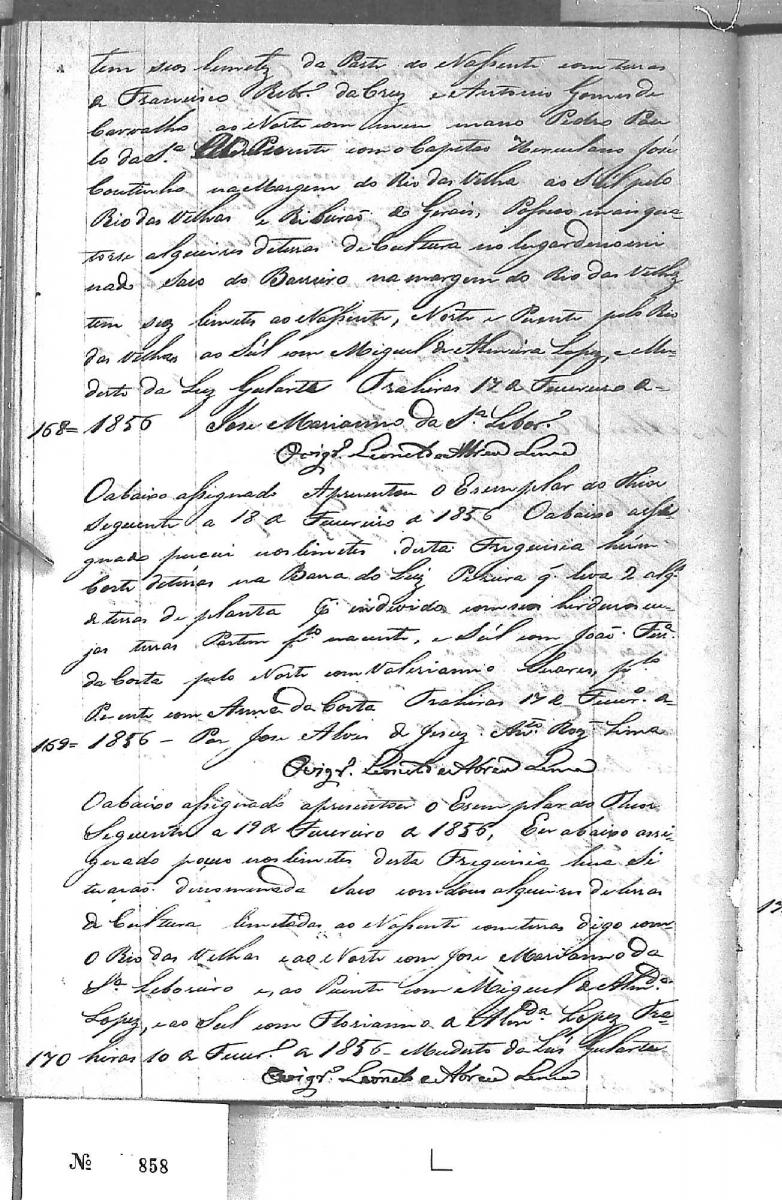 tem seos limetz da Parte do Nassente com terras
de Francisco Ribr.º da Cruz e Antonio Gomes de
Carvalho ao Norte com meu mano Pedro Pau-
lo da S.ª Puente com o Capetão Herculano José
Coutinho na Margem do Rio das Velha ao Sul pelo
Rio das Velhas e Ribeirão de Gerais, Possuo mais qua-
torse alqueires de terras de Cultura no lugar denomi
nado Saco do Barreiro na margem do Rio das Velhas
tem seoz limetes ao Nassente, Norte e Puente pelo Rio
das Velhas ao Sul com Miguel de Almeida Lopez, e Mu-
desto da Luz Gularte Trahiras 17 de Fevereiro de
168= 1856 Jose Marianno da S.ª Lebor.º
O vigr.º Leonel de Abreu Lima
O abaixo assignado Apresentou o Exemplar do Thior
Seguente a 18 de Fevereiro de 1856 O abaixo assi
gnado pucui nos limetes desta Freguisia hum
Corte de terras na Barra do Luiz Pereira q. leva 2 alq.s
de terras de planta em individo com seos herdeiros cu-
jas terras Partem p.lo nacente, e Sul com João Ferr.ª
da Costa pelo Norte com Valerianno Soares, p.lo
Puente com Anna da Costa Trahiras 17 de Fever.º de
169= 1856 - Por Jose Alves de Jesuz. An.to Roz Lima
O vigr.º Leonel de Abreu Lima
O abaixo assignado apresentou o Exemplar do Thior
Seguente a 19 de Fevereiro de 1856, Eu abaixo assi-
gnado pouco nos limetes desta Freguisia hua Si
tuacão denominada Saco com dous alqueires de terras
de Cultura limetadas ao Nassente com terras digo com
O Rio das Velhas e ao Norte com Jose Marianno da
S.ª Leboreiro e, ao Puente com Miguel de Alm.da
Lopez, e ao Sul com Florianno de Alm.da Lopez Tra-
170 hiras 10 de Fever.º de 1856 - Mudesto da Luz Gularte
O vigr.º Leonel de Abreu Lima
Nº 858